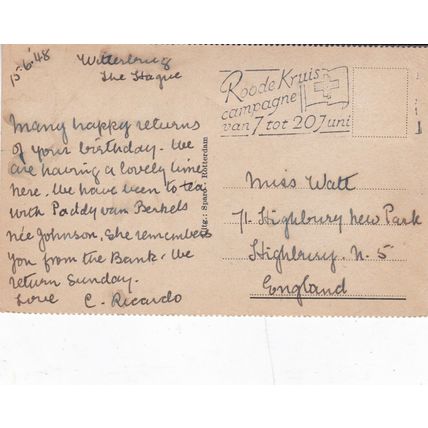 15·6·48
Witterbrug
The Hague
Many happy returns
of your birthday. We
are having a lovely time
here. We have been to tea
with Paddy van Berkels
née Johnson. She remembers
you from the Bank. We
return Sunday.
Love C. Ricardo
Uitg.: Sparo Rotterdam
Roode Kruis
campagne
van 7 tot 20 Juni
Miss Watt
71 Highbury New Park
Highbury. N. 5
England